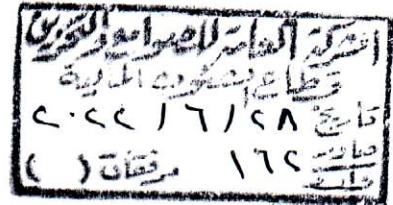 الشركة العامة للصوامع والتخزين
قطاع الشئون المالية
تاريخ ٢٠٢٢/٦/٢٨
صادر ١٦٢ مرفقات ( )